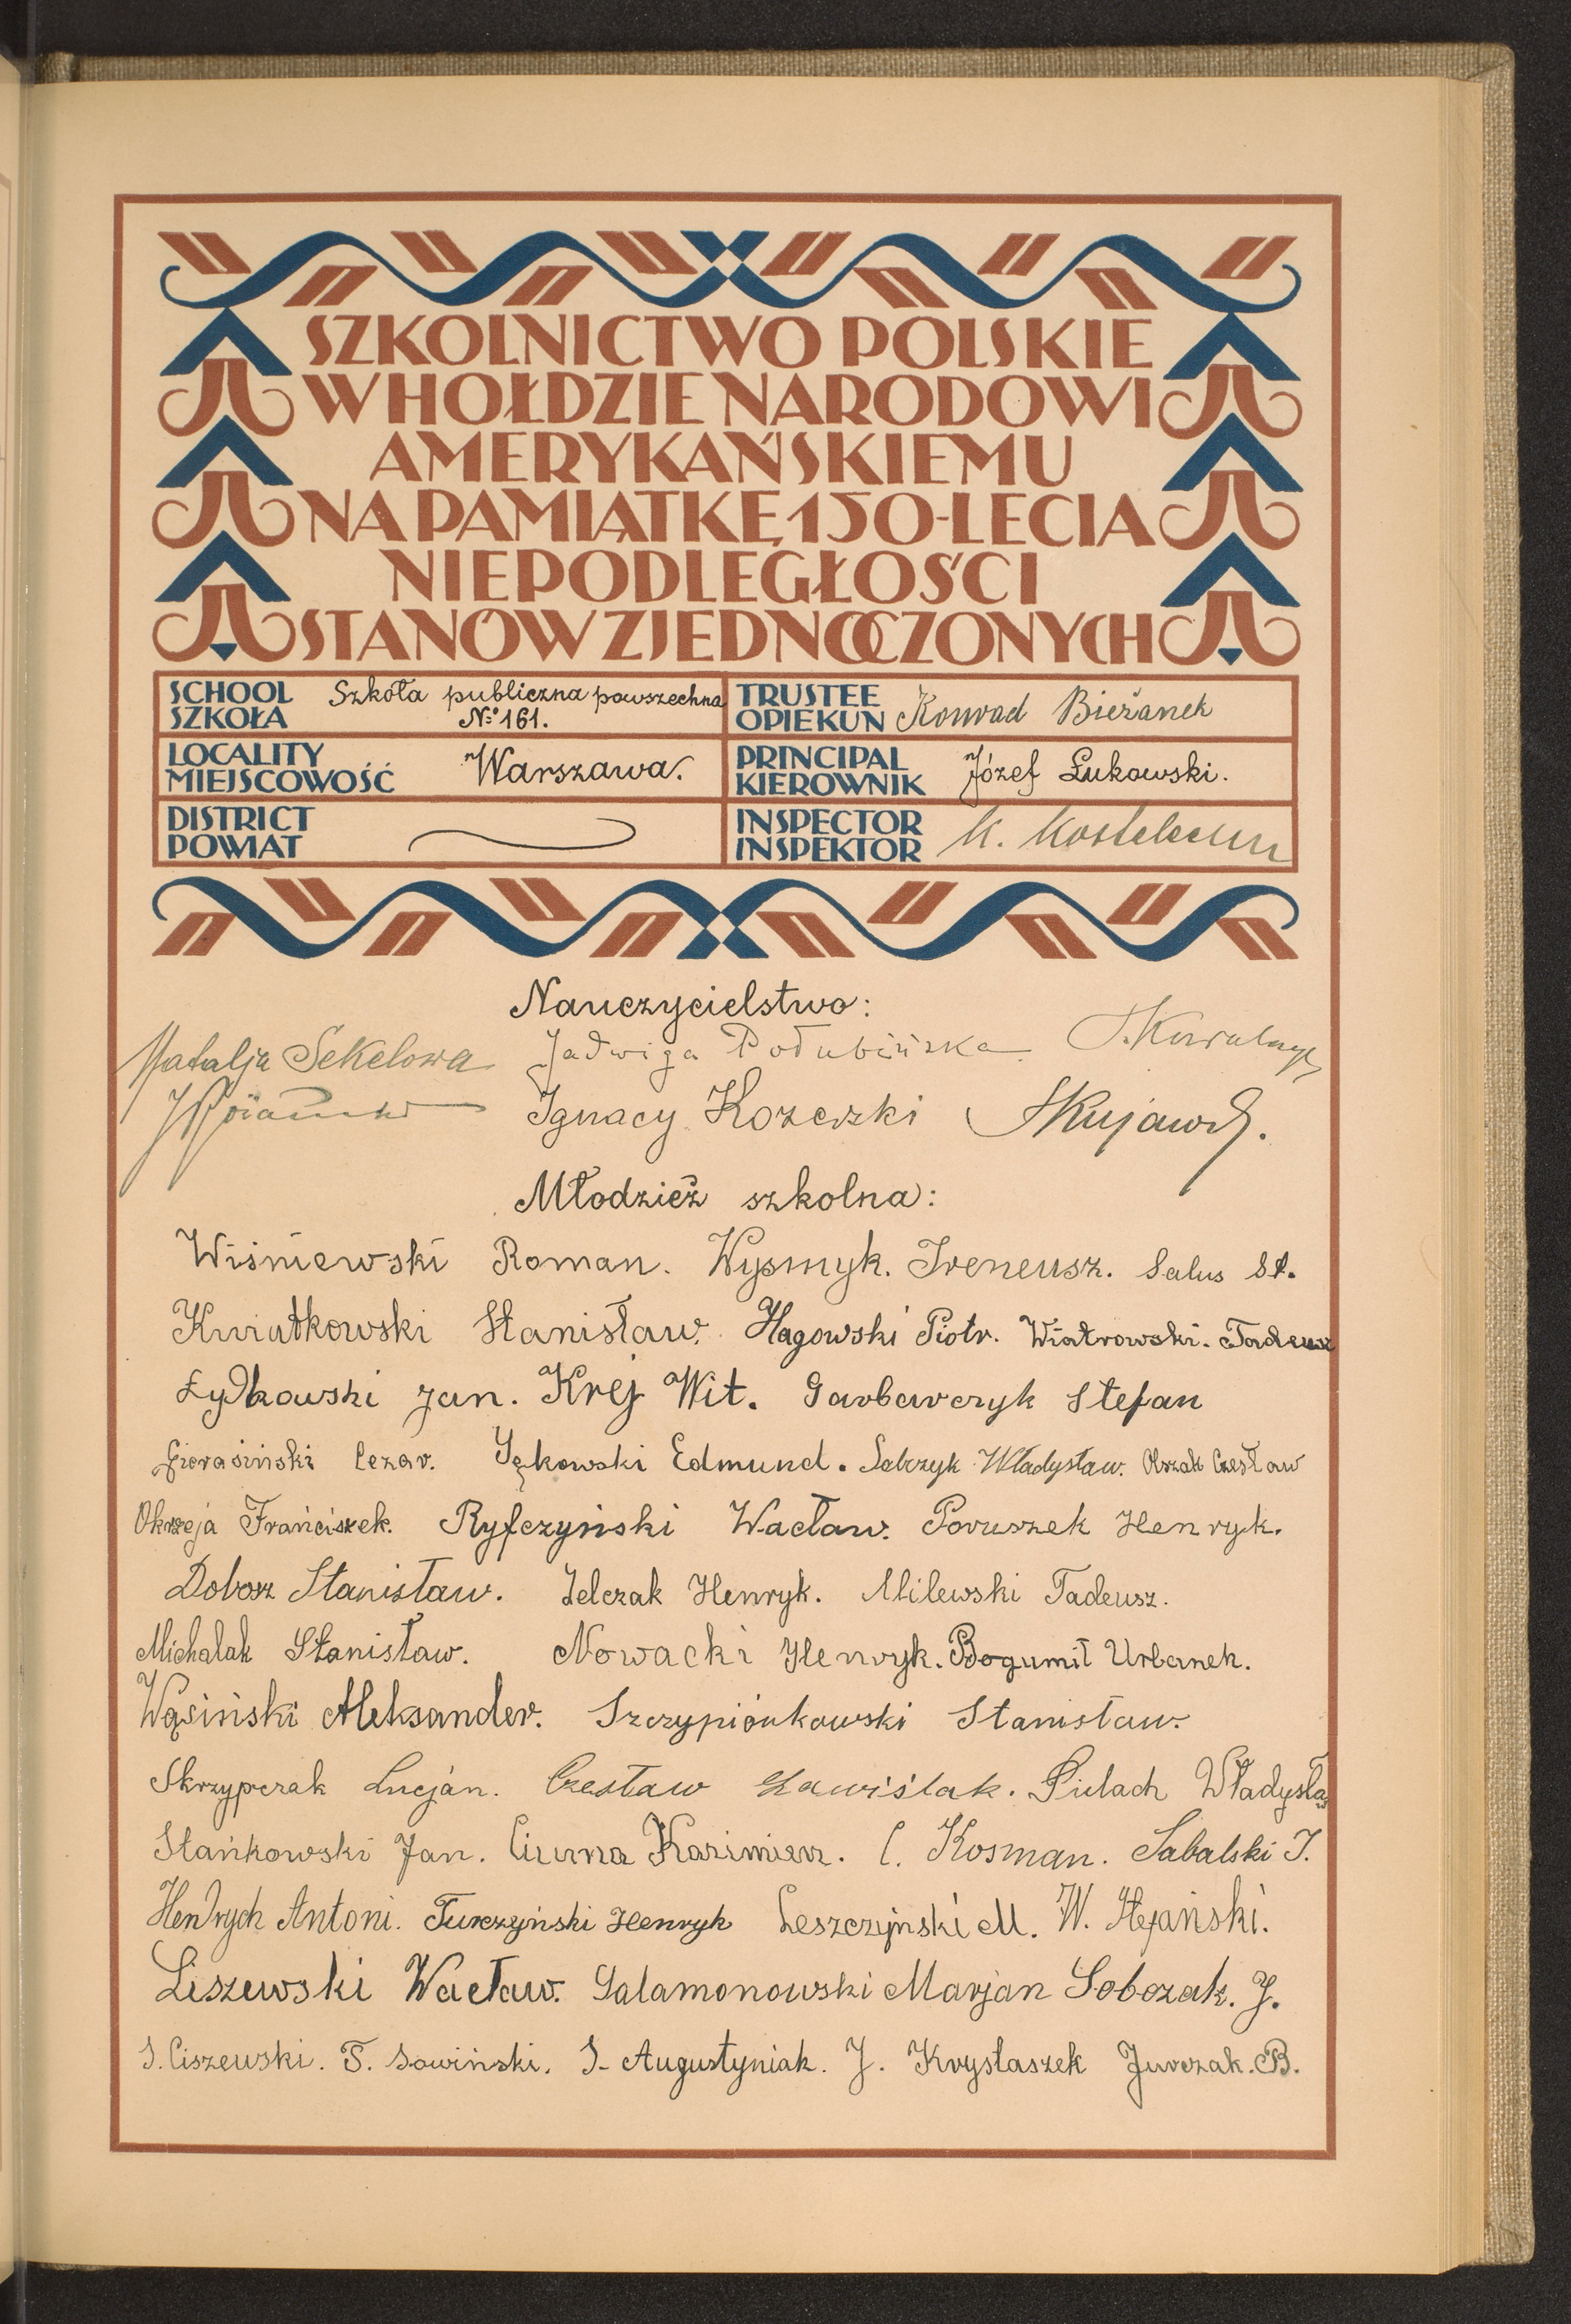 SZKOLNICTWO POLSKIE
W HOŁDZIE NARODOWI
AMERYKAŃSKIEMU
NA PAMIĄTKĘ 150-LECIA
NIEPODLEGŁOŚCI
STANÓW ZJEDNOCZONYCH
SCHOOL
SZKOŁA
Szkoła publiczna powszechna
№ 161.
TRUSTEE
OPIEKUN
Konrad Bieżanek
LOCALITY
MIEJSCOWOŚĆ
Warszawa.
PRINCIPAL
KIEROWNIK
Józef Łukowski.
DISTRICT
POWIAT
INSPECTOR
INSPEKTOR
K.
Nauczycielstwo:
Natalja Sekelowa Jadwiga Połubińska
Ignacy Kozerski
Młodzież szkolna:
Wiśniewski Roman. Wysmyk. Ireneusz. Salus St.
Kwiatkowski Stanisław. Hagowski Piotr. Wiatrowski. Tadeusz
Łydkowski Jan. Krej Wit. Garbarczyk Stefan
Cezar. Edmund. Władysław. Olszak Czesław
Okrzeja Franciszek. Ryfczyński Wacław. Poruszek Henryk.
Dobosz Stanisław. Jelczak Henryk. Milewski Tadeusz.
Michalak Stanisław. Nowacki Henryk. Bogumił Urbanek.
Wąsiński Aleksander. Szczypiórkowski Stanisław.
Skrzypczak Lucjan. Czesław Zawiślak. Władysław
Stańkowski Jan. Kazimierz. C. Kosman. Sabalski J.
Hendrych Antoni. Turczyński Henryk Leszczyński M. W. Stefański.
Liszewski Wacław. Salamonowski Marjan Sobczak. J.
S. Ciszewski. T. Sowiński. S. Augustyniak. J. Krystaszek Jurczak. B.